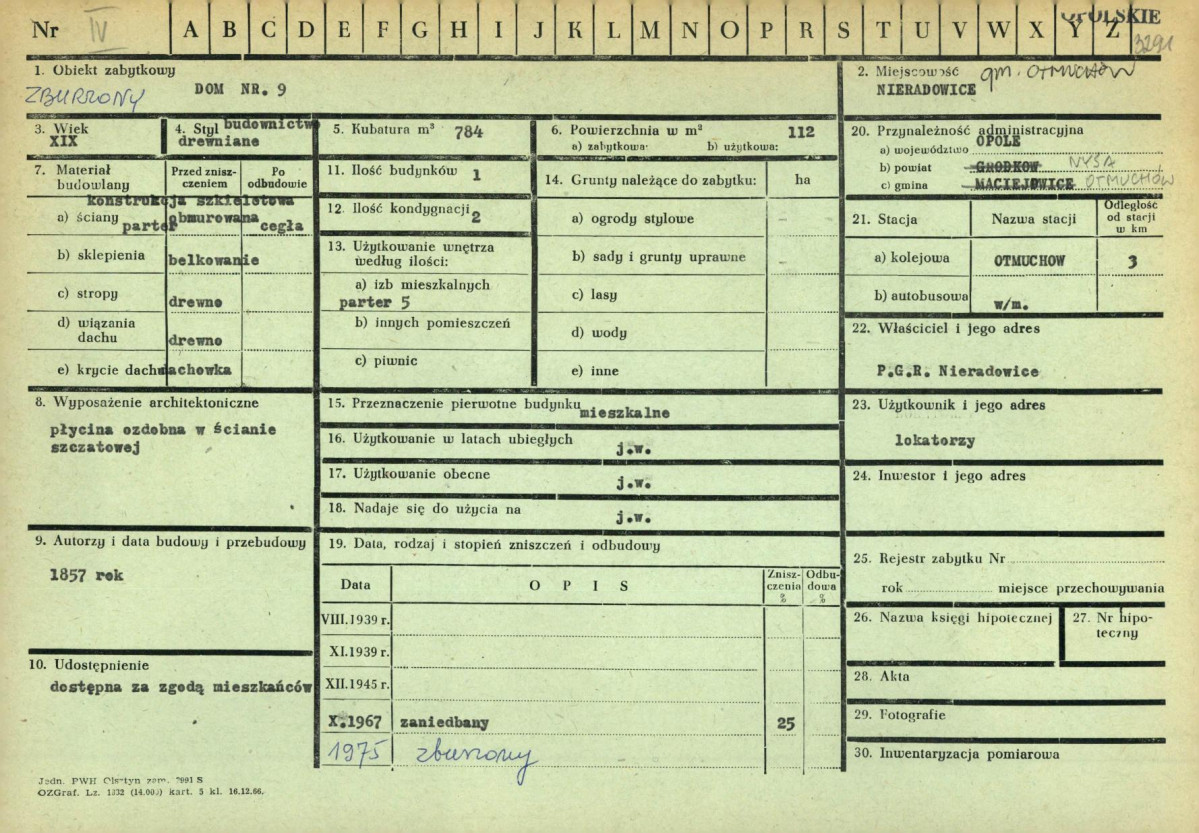 Nr IV A B C D E F G H I J K L M N O P R S T U V W X Y Z OPOLSKIE
3291
1. Obiekt zabytkowy
ZBURZONY
DOM NR. 9
2. Miejscowość gm. OTMUCHÓW
NIERADOWICE
3. Wiek
XIX
4. Styl budownictwo
drewniane
5. Kubatura m³ 784
6. Powierzchnia w m² 112
a) zabytkowa: b) użytkowa:
7. Materiał budowlany
Przed zniszczeniem
Po odbudowie
konstrukcja szkieletowa
a) ściany parter obmurowana cegła
b) sklepienia belkowanie
c) stropy drewno
d) wiązania dachu drewno
e) krycie dachu dachowka
8. Wyposażenie architektoniczne
płycina ozdobna w ścianie
szczatowej
9. Autorzy i data budowy i przebudowy
1857 rok
10. Udostępnienie
dostępna za zgodą mieszkańców
11. Ilość budynków 1
12. Ilość kondygnacji 2
13. Użytkowanie wnętrza
według ilości:
a) izb mieszkalnych
parter 5
b) innych pomieszczeń
c) piwnic
14. Grunty należące do zabytku: ha
a) ogrody stylowe
b) sady i grunty uprawne
c) lasy
d) wody
e) inne
15. Przeznaczenie pierwotne budynku mieszkalne
16. Użytkowanie w latach ubiegłych j.w.
17. Użytkowanie obecne j.w.
18. Nadaje się do użycia na j.w.
19. Data, rodzaj i stopień zniszczeń i odbudowy
Data OPIS Zniszczenia % Odbudowa %
VIII.1939 r.
XI.1939 r.
XII.1945 r.
X.1967 zaniedbany 25
1975 zburzony
20. Przynależność administracyjna
a) województwo OPOLE
b) powiat GRODKOW NYSA
c) gmina MACIEJOWICE OTMUCHÓW
21. Stacja Nazwa stacji Odległość od stacji w km
a) kolejowa OTMUCHOW 3
b) autobusowa w/m.
22. Właściciel i jego adres
P.G.R. Nieradowice
23. Użytkownik i jego adres
lokatorzy
24. Inwestor i jego adres
25. Rejestr zabytku Nr
rok miejsce przechowywania
26. Nazwa księgi hipotecznej
27. Nr hipoteczny
28. Akta
29. Fotografie
30. Inwentaryzacja pomiarowa
Jedn. PWH Olsztyn zam. 2991 S
OZGraf. Lz. 1332 (14.000) kart. 5 kl. 16.12.66.